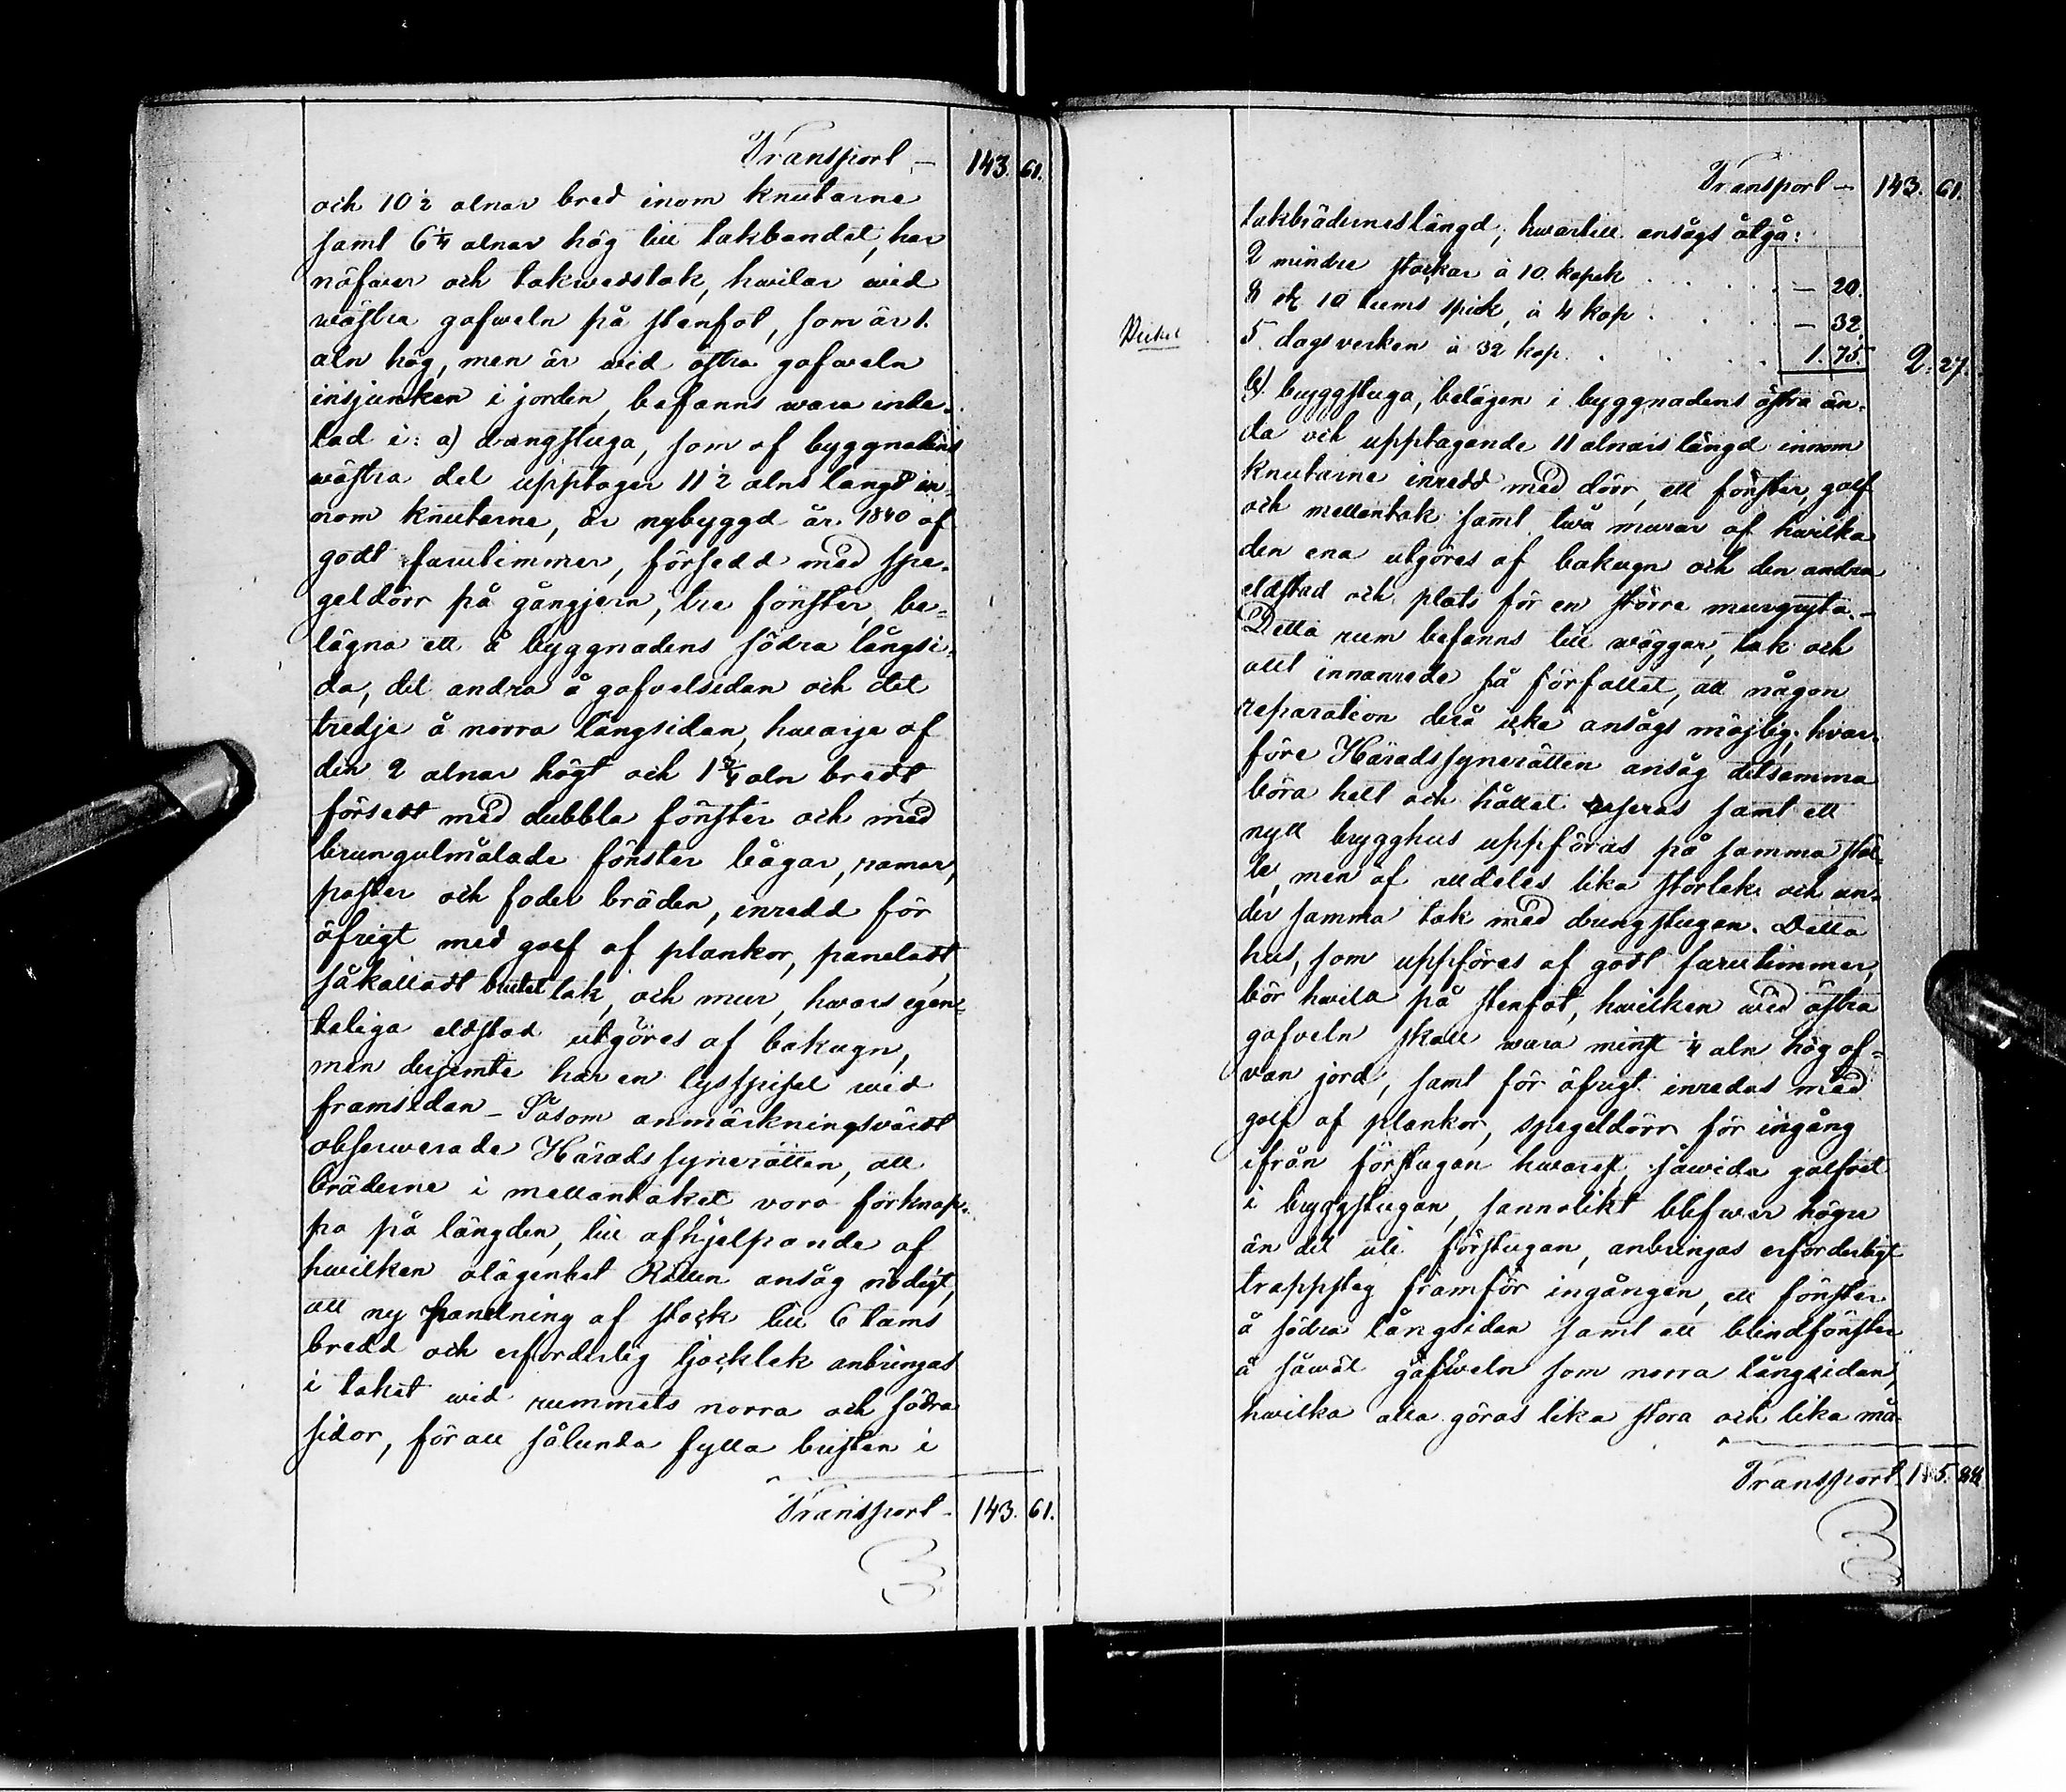 Transport – 143. 61.
och 10 1/2 alnar bred inom knutarne
samt 6 1/4 alnar hög till takbandet, har
näfver och takvedstak, hvilar wid
wästra gafweln på stenfot, som är 1.
aln hög, men är wid östra gafweln
insjunken i jorden, befanns wara inde-
lad i: a) drängstuga, som af byggnadens
wästra del upptager 11 1/2 alns längd in-
nom knutarne, är nybyggd år 1840 af
godt furutimmer, försedd med spe-
geldörr på gångjern, tre fönster, be-
lägna ett å byggnadens södra långsi-
da, det andra å gafvelsidan och det
tredje å norra långsidan, hvarje af
dem 2 alnar högt och 1 3/4 aln bredt
försedt med dubbla fönster och med
brungulmålade fönster bågar, ramar,
poster och foder bräden, inredd för
öfrigt med golf af plankor, paneladt,
såkalladt brutet tak, och mur, hvars egen-
teliga eldstad utgöres af bakugn,
men derjemte har en lysspisel wid
framsidan – Såsom anmärkningsvärdt
observerade Häradssynerätten, att
bräderne i mellantaket voro för knap-
pa på längden, till afhjelpande af
hwilken olägenhet Rätten ansåg nödigt,
att ny panelning af stock till 6 tums
bredd och erforderlig tjocklek anbringas
i taket wid rummets norra och södra
sidor, för att sålunda fylla bristen i
Transport – 143. 61.
Transport – 143. 61.
takbrädernes längd, hwartill ansågs åtgå:
2 mindre stockar à 10. kopek – 20.
8 st 10 tums spik, à 4 kop – 32.
5. dagsverken à 32 kop. 1. 75. 2. 27.
b) bryggstuga, belägen i byggnadens östra än-
da och upptagande 11 alnars längd innom
knutarne inredd med dörr, ett fönster, golf
och mellantak samt två murar af hwilka
den ena utgöres af bakugn och den andra
eldstad och plats för en större murgryta. –
Detta rum befanns till wäggar, tak och
allt innanrede så förfallet, att någon
reparation derå icke ansågs möjlig; hvar-
före Häradssynerätten ansåg detsamma
böra helt och hållet raseras samt ett
nytt brygghus uppföras på samma stäl-
le, men af alldeles lika storlek och un-
der samma tak med drängstugan. Detta
hus, som uppföres af godt furutimmer,
bör hwila på stenfot, hwilken wid östra
gafveln skall wara minst 1/4 aln hög of-
van jord, samt för öfrigt inredas med
golf af plankor, spegeldörr för ingång
ifrån förstugan hwarest, såwida golfvet
i bryggstugan, sannolikt blifwer högre
än det uti förstugan, anbringas erforderligt
trappsteg framför ingången, ett fönster
å södra långsidan samt ett blindfönster
å såwäl gafweln som norra långsidan,
hwilka alla göras lika stora och lika må-
Transport 145. 88.